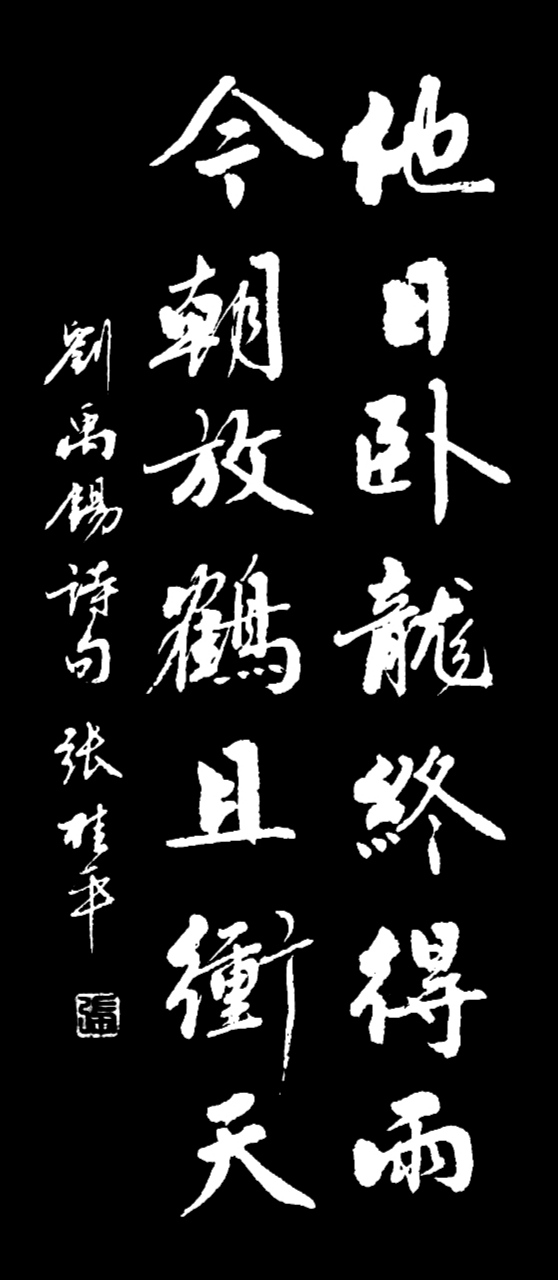 他日卧龍終得雨
今朝放鶴且衝天
劉禹錫詩句 張桂平
張